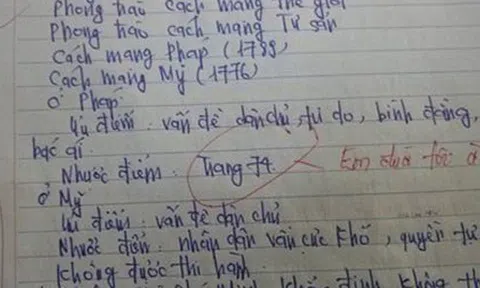 Phong trào cách mạng thế giới
Phong trào cách mạng Tư sản
Cách mạng Pháp (1789)
Cách mạng Mỹ (1776)
Ở Pháp
Ưu điểm: vấn đề dân chủ, tự do, bình đẳng,
bác ái
Nhược điểm: Trang 74.
Em đùa tôi à
Ở Mỹ
Ưu điểm: vấn đề dân chủ
Nhược điểm: nhân dân vẫn cực khổ, quyền tự
không được thi hành